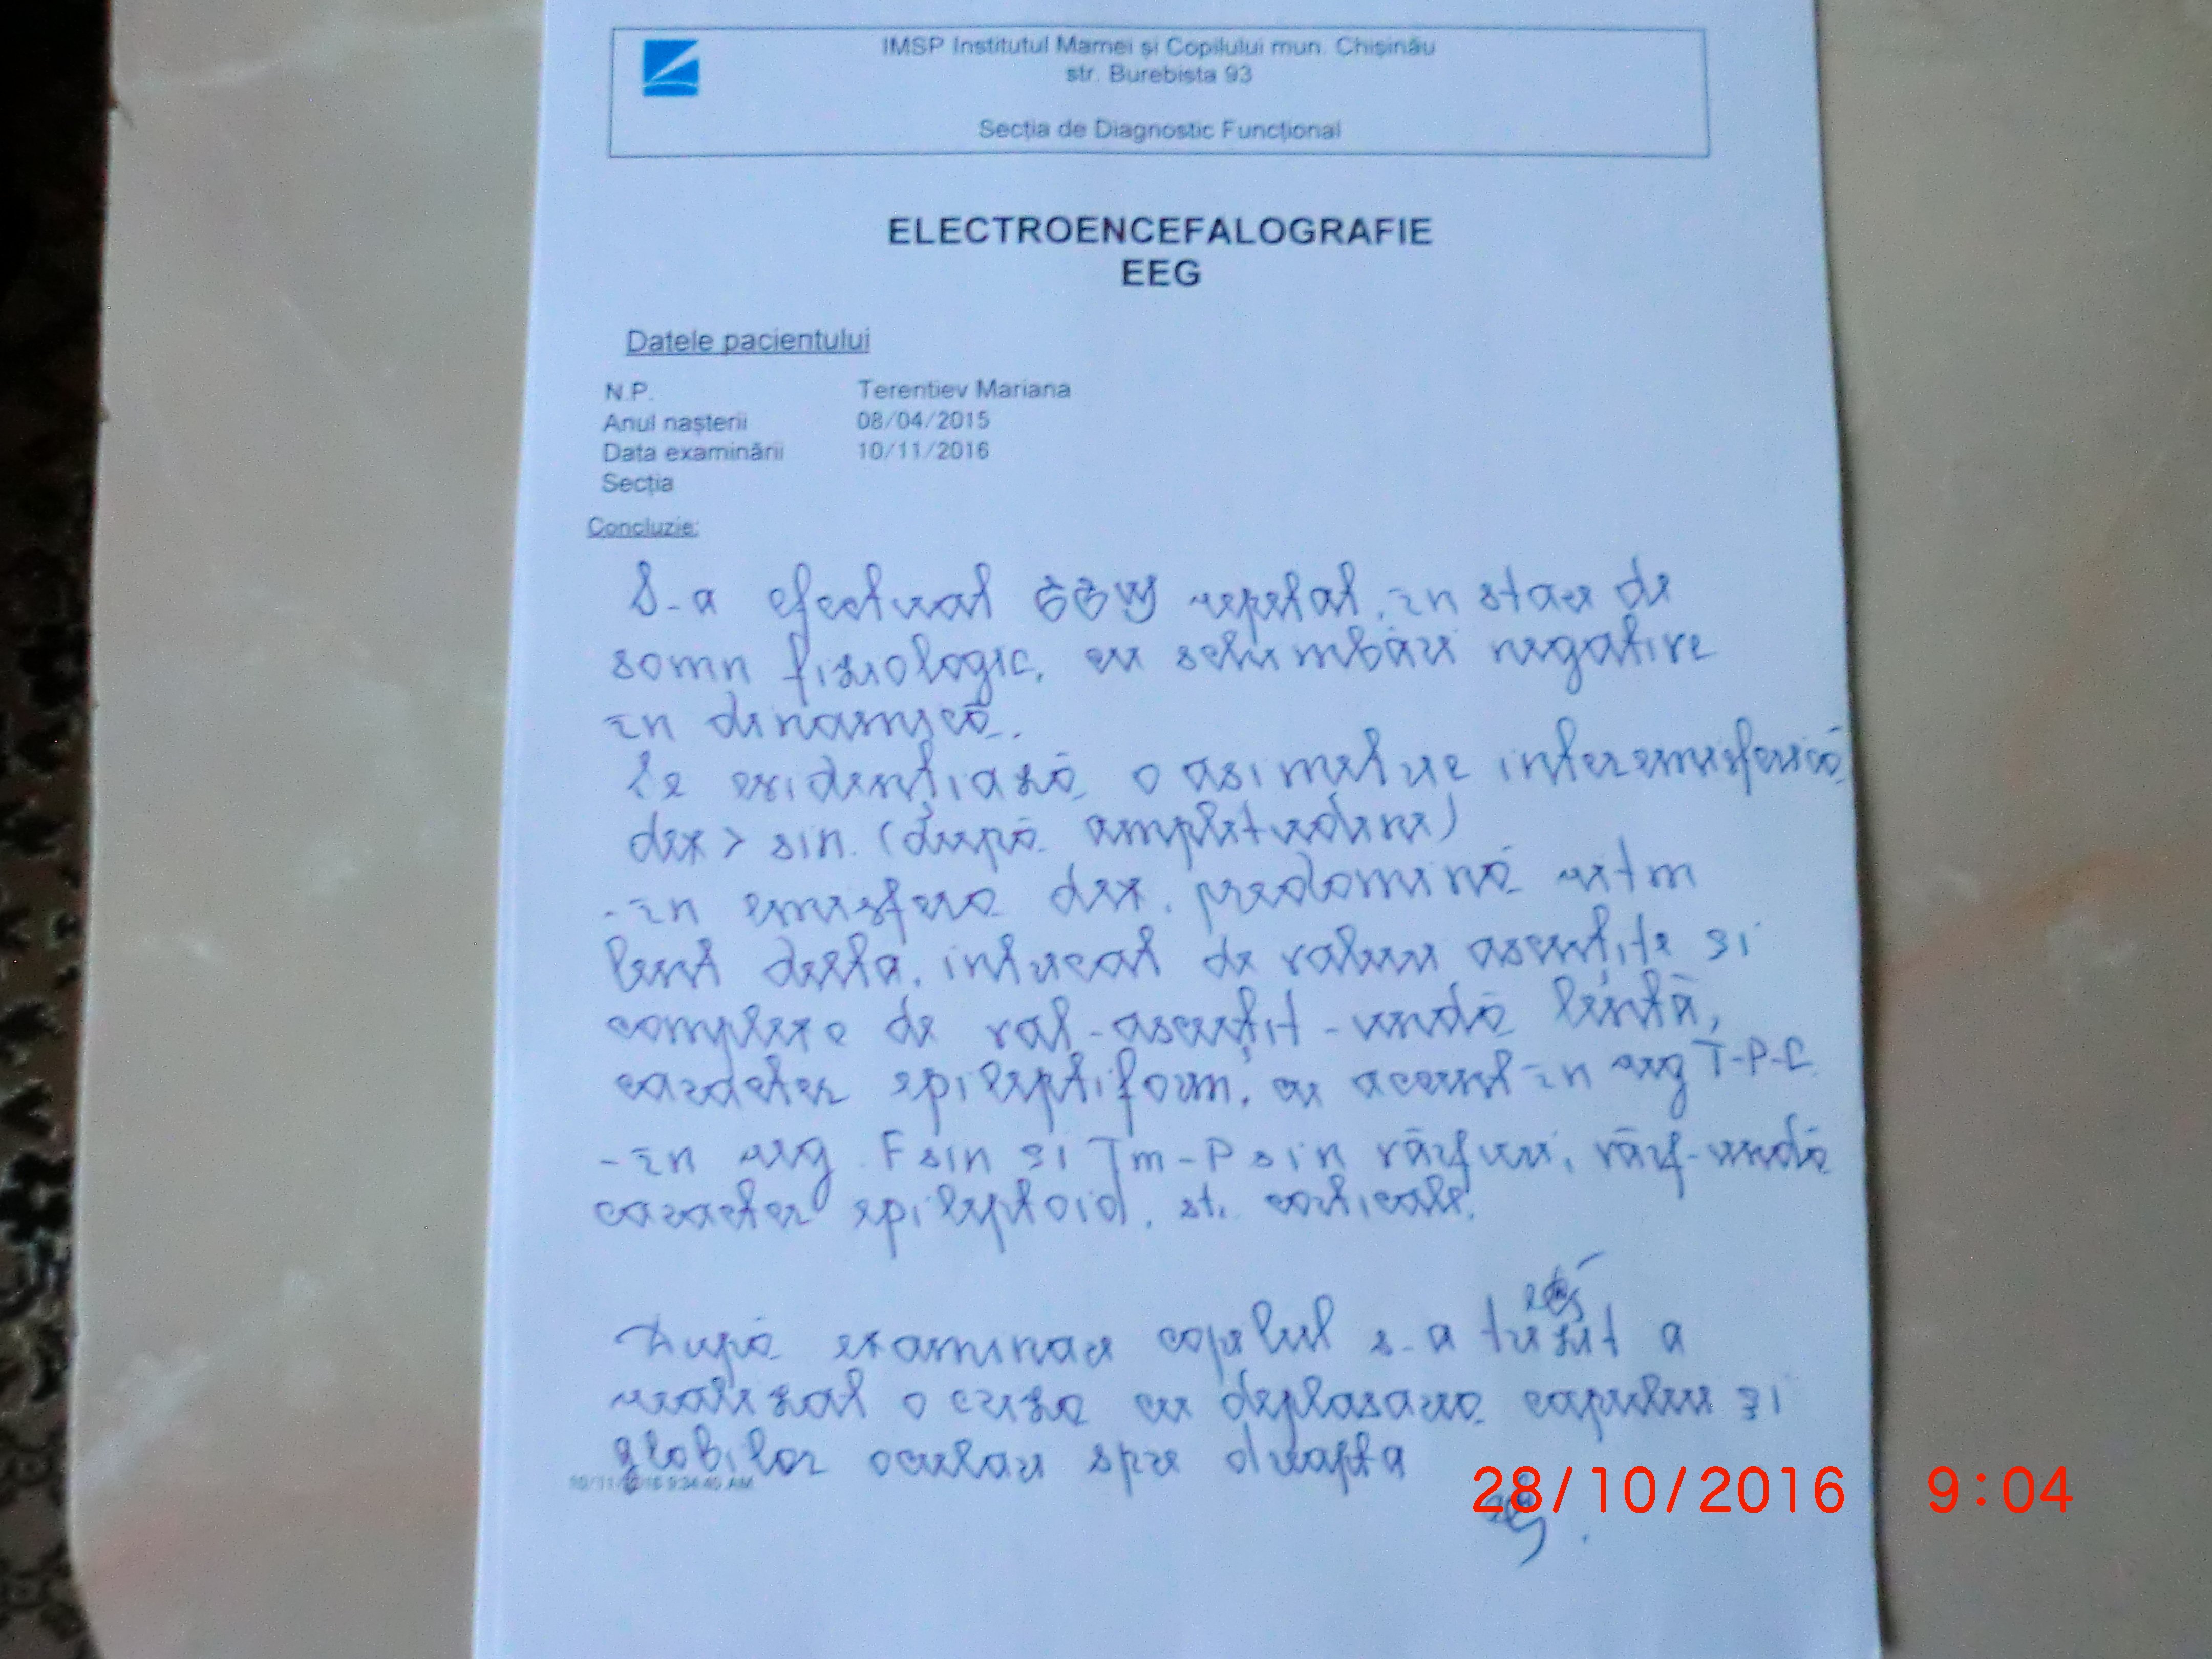 IMSP Institutul Mamei și Copilului mun. Chișinău
str. Burebista 93
Secția de Diagnostic Funcțional
ELECTROENCEFALOGRAFIE
EEG
Datele pacientului
N.P. Terentiev Mariana
Anul nașterii 08/04/2015
Data examinării 10/11/2016
Secția
Concluzie:
S-a efectuat EEG repetat, în stare de
somn fiziologic, cu schimbări negative
în dinamică.
Se evidențiază o asimetrie interemisferică
dex > sin. (după amplitudine)
- în emisfera dex. predomină ritm
lent delta, intricat de valuri ascuțite și
complexe de val-ascuțit-undă lentă,
caracter epileptiform, cu accent în reg T-P-C
- în reg. F sin și Tm-P sin vârfuri, vârf-undă
caracter epileptoid, st. corticale.
După examinare copilul s-a trezit a
realizat o criză cu deplasarea capului și
globilor oculari spre dreapta
10/11/2016 9:34:40 AM
28/10/2016 9:04